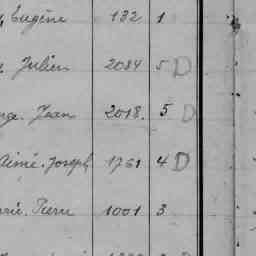 Eugène 132 1
Julien 2084 5 D
Jean 2018. 5 D
Aimé. Joseph 1761 4 D
Pierre 1001 3